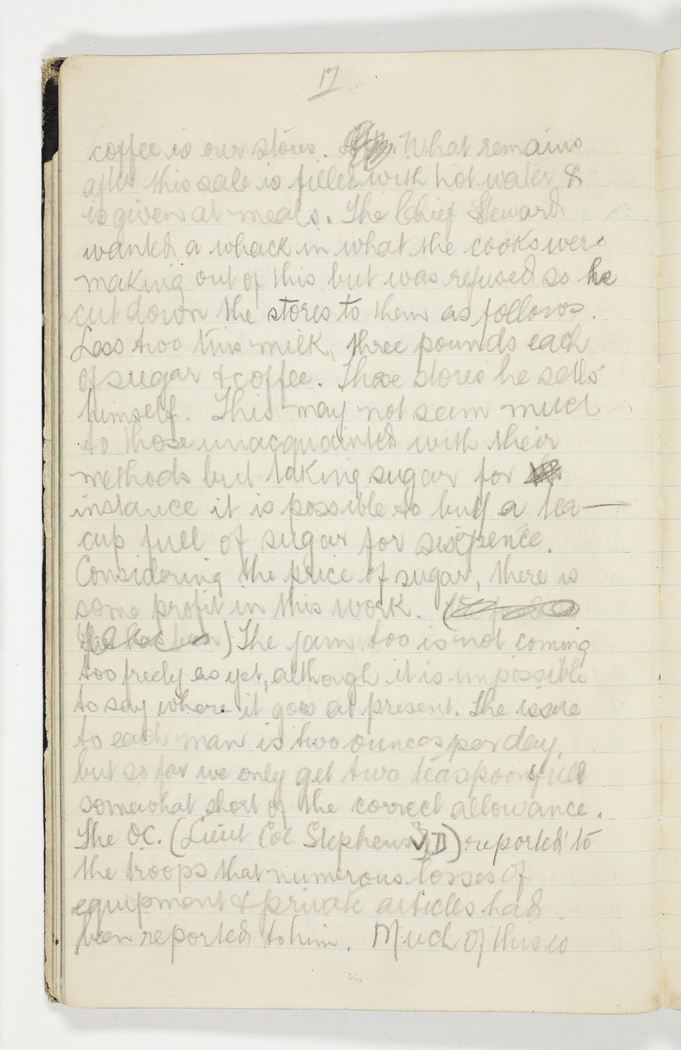 17
coffee is our stores. What remains
after this sale is filled with hot water &
is given at meals. The Chief Steward
wanted a whack in what the cooks were
making out of this but was refused so he
cut down the stores to them as follows.
Less two tins milk, three pounds each
of sugar & coffee. These stores he sells
himself. This may not seem much
to those unacquainted with their
methods but taking sugar for
instance it is possible to buy a tea-
cup full of sugar for sixpence.
Considering the price of sugar, there is
some profit in this work. (
) The jam too is not coming
too freely as yet, although it is impossible
to say where it goes at present. The issue
to each man is two ounces per day,
but so far we only get two teaspoonfull
somewhat short of the correct allowance.
The O.C. (Lieut Col Stephens VD) reported to
the troops that numerous losses of
equipment & private articles had
been reported to him. Much of this is